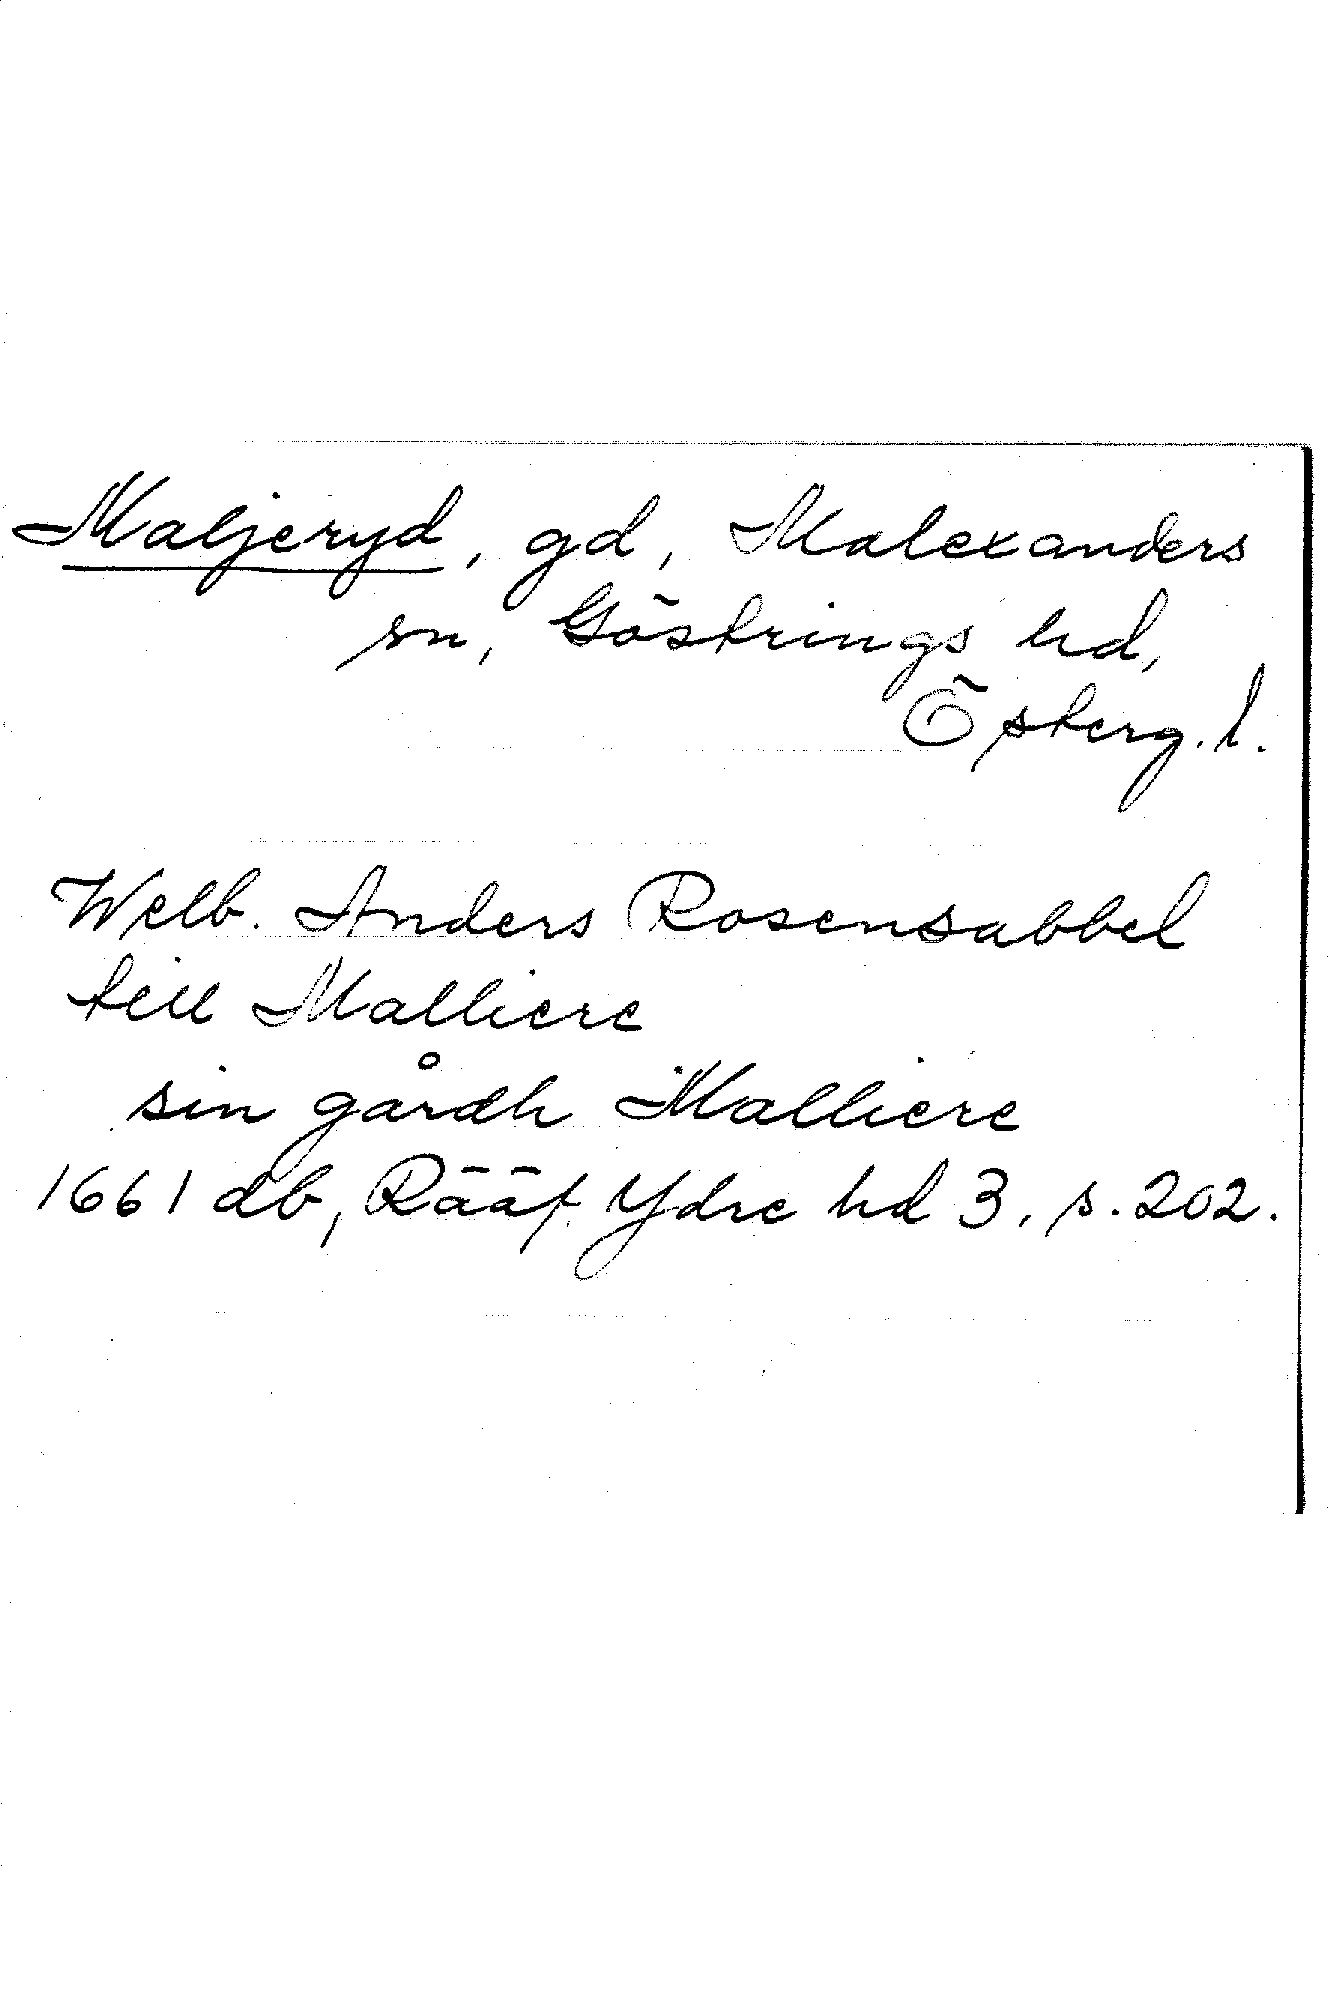 Maljeryd, gd, Malexanders
sn, Göstrings hd,
Österg. l.
Welb. Anders Rosensabbel
till Malliere
sin gårdh Malliere
1661 db, Rääf Ydre hd 3, s. 202.